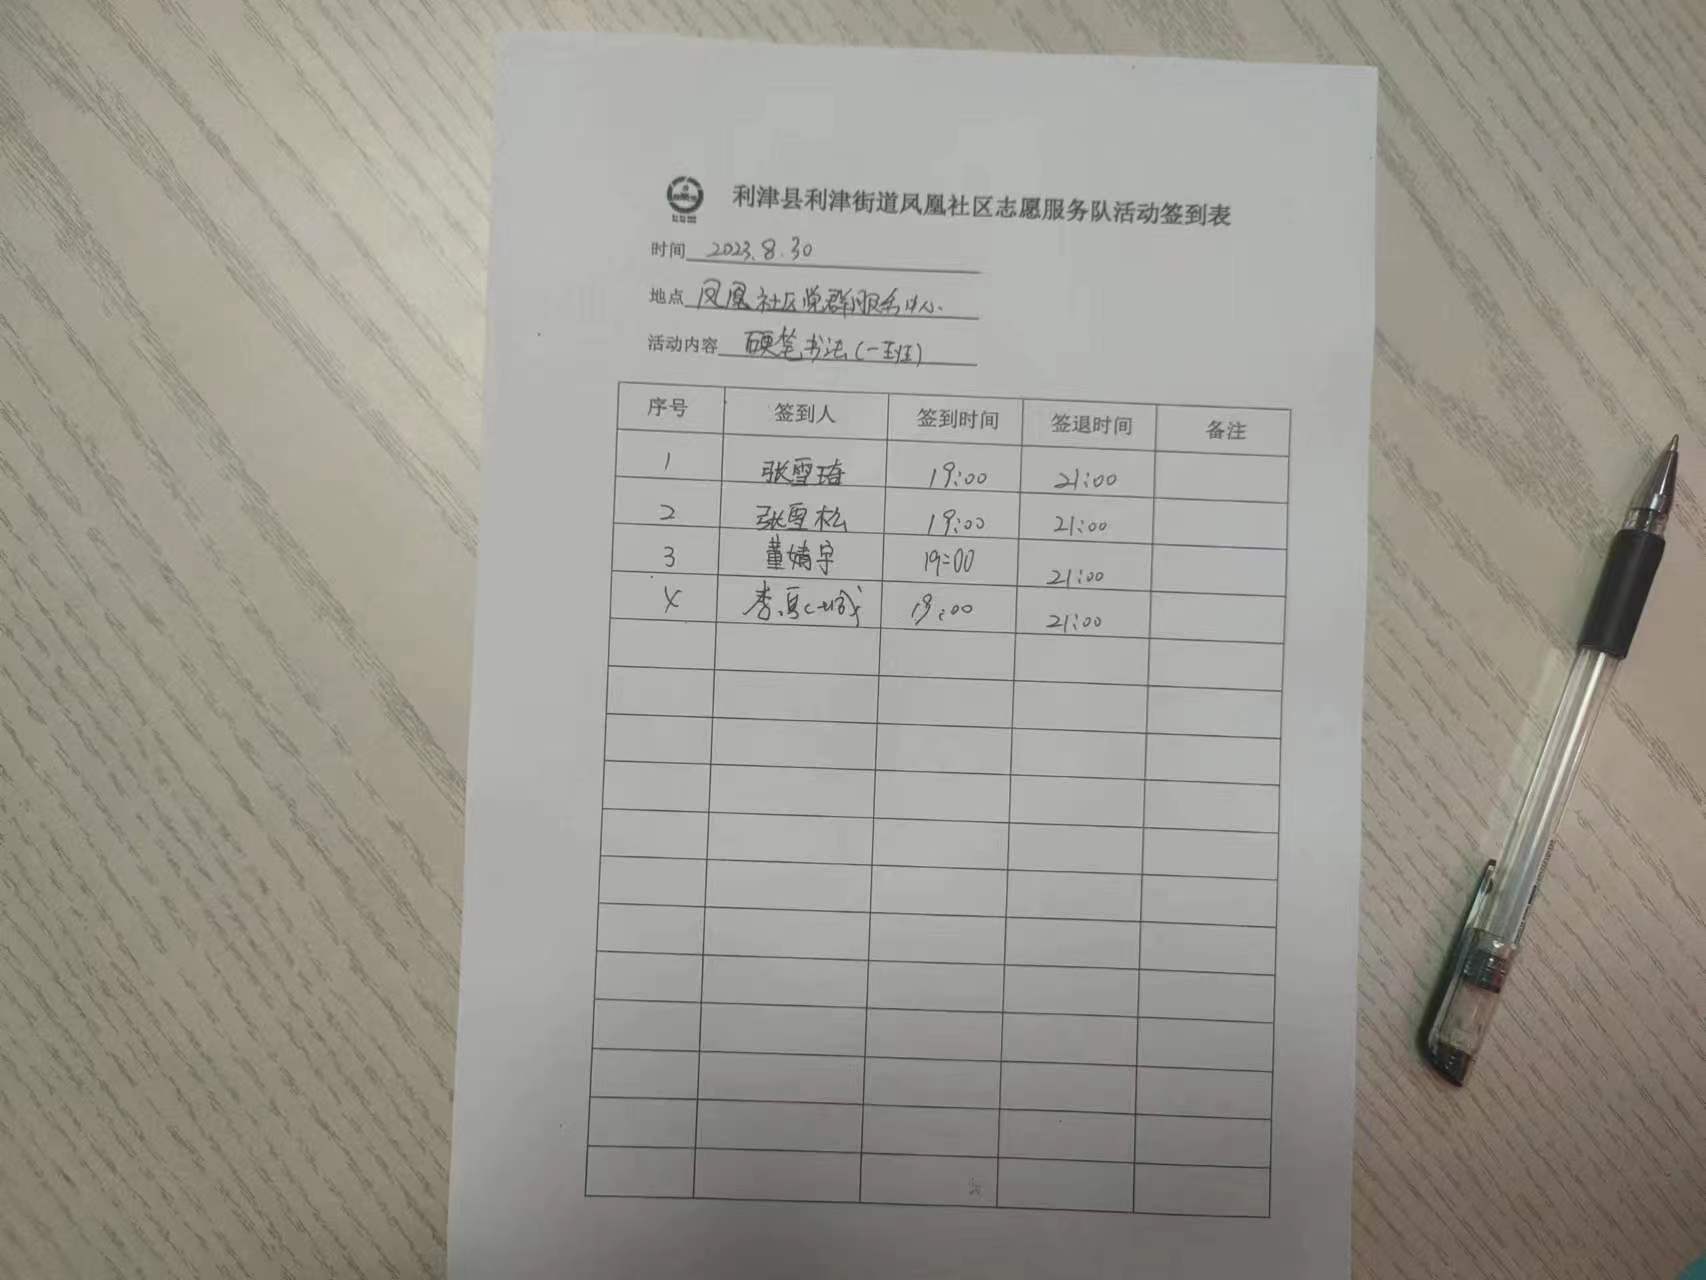 利津县利津街道凤凰社区志愿服务队活动签到表
时间 2023.8.30
地点 凤凰社区党群服务中心.
活动内容 硬笔书法(一班)
序号 签到人 签到时间 签退时间 备注
1 张雪琦 19:00 21:00
2 张雪松 19:00 21:00
3 董婧宇 19:00 21:00
4 李 19:00 21:00